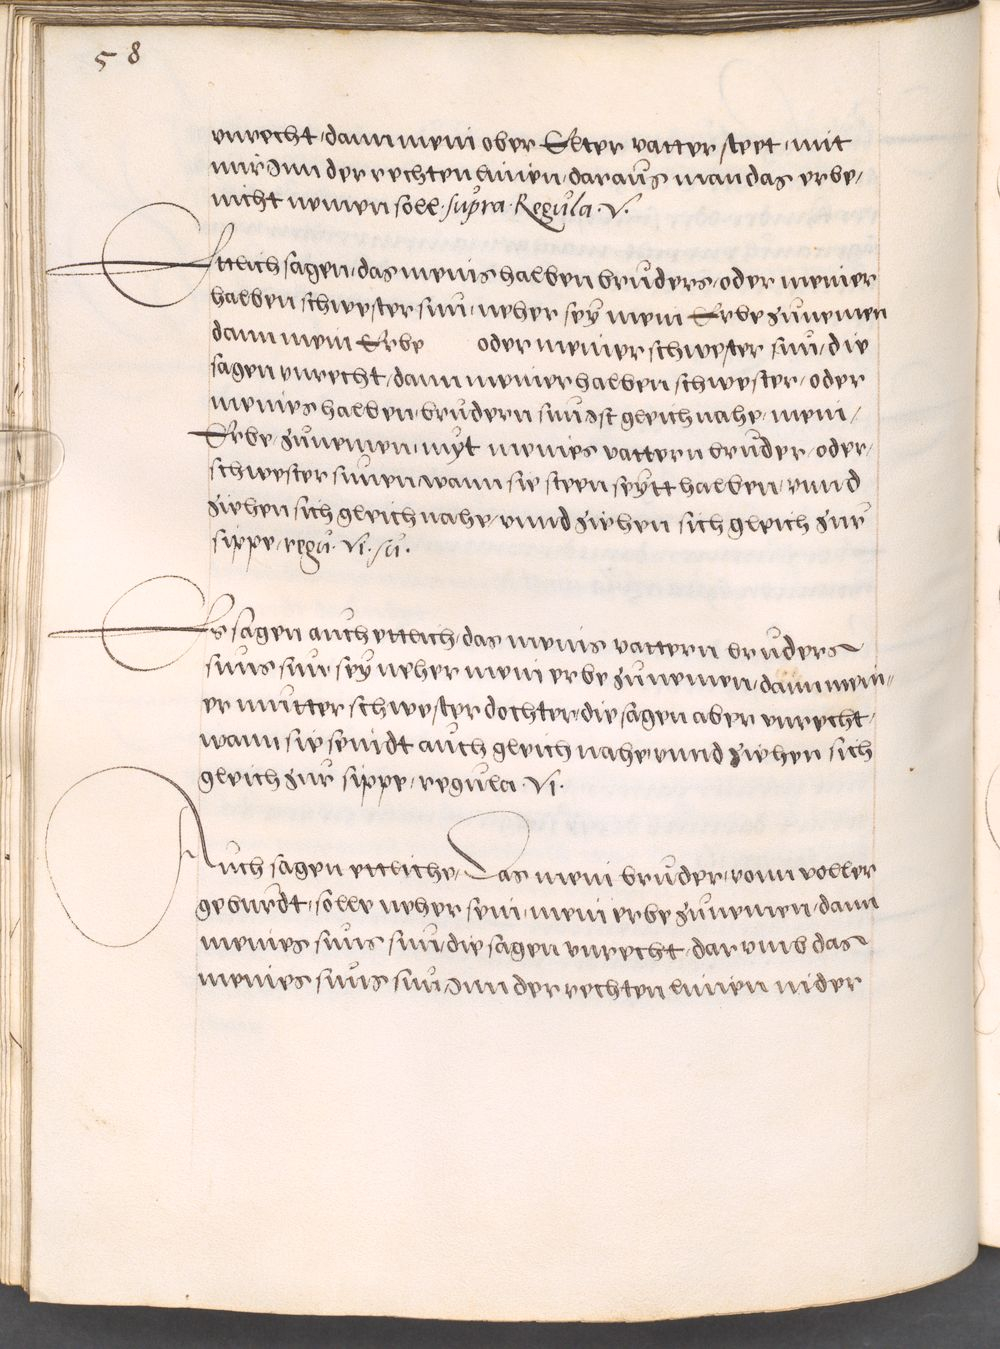 58
vnrecht, dann mein ober Elter vatter steet, mit
mir Inn der rechten linien, daraus man das erbe,
nicht nemen soll. supra. Regula. V.
Ettlich sagen, das meins halben bruders, oder meiner
halben schwester sun, neher sey mein Erbe zunemen
dann mein Erbe oder meiner schwester sun, die
sagen vnrecht, dann meiner halben schwester, oder
meines halben, brudern sun Ist gleich nahe, mein,
Erbe, zunemen, myt meines vattern bruder, oder,
schwester sunen, wann sie steen seytt halben, vnnd
ziehen sich gleich nahe, vnnd ziehen sich gleich zur
sippe, regu. Vi. su.
Es sagen auch ettlich, das meins vattern bruders
suns sun, sey neher mein erbe zunemen, dann mein,,
er mutter schwester dochter, die sagen aber vnrecht,
wann sie seindt auch gleich nahe vnnd ziehen sich
gleich zur sippe, regula. Vi.
Auch sagen ettliche, Das mein bruder, vonn voller
geburdt, solle neher sein, mein erbe zunemen, dann
meines suns sun, die sagen vnrecht, dar vmb das
meines suns sun Inn der rechten linien nider